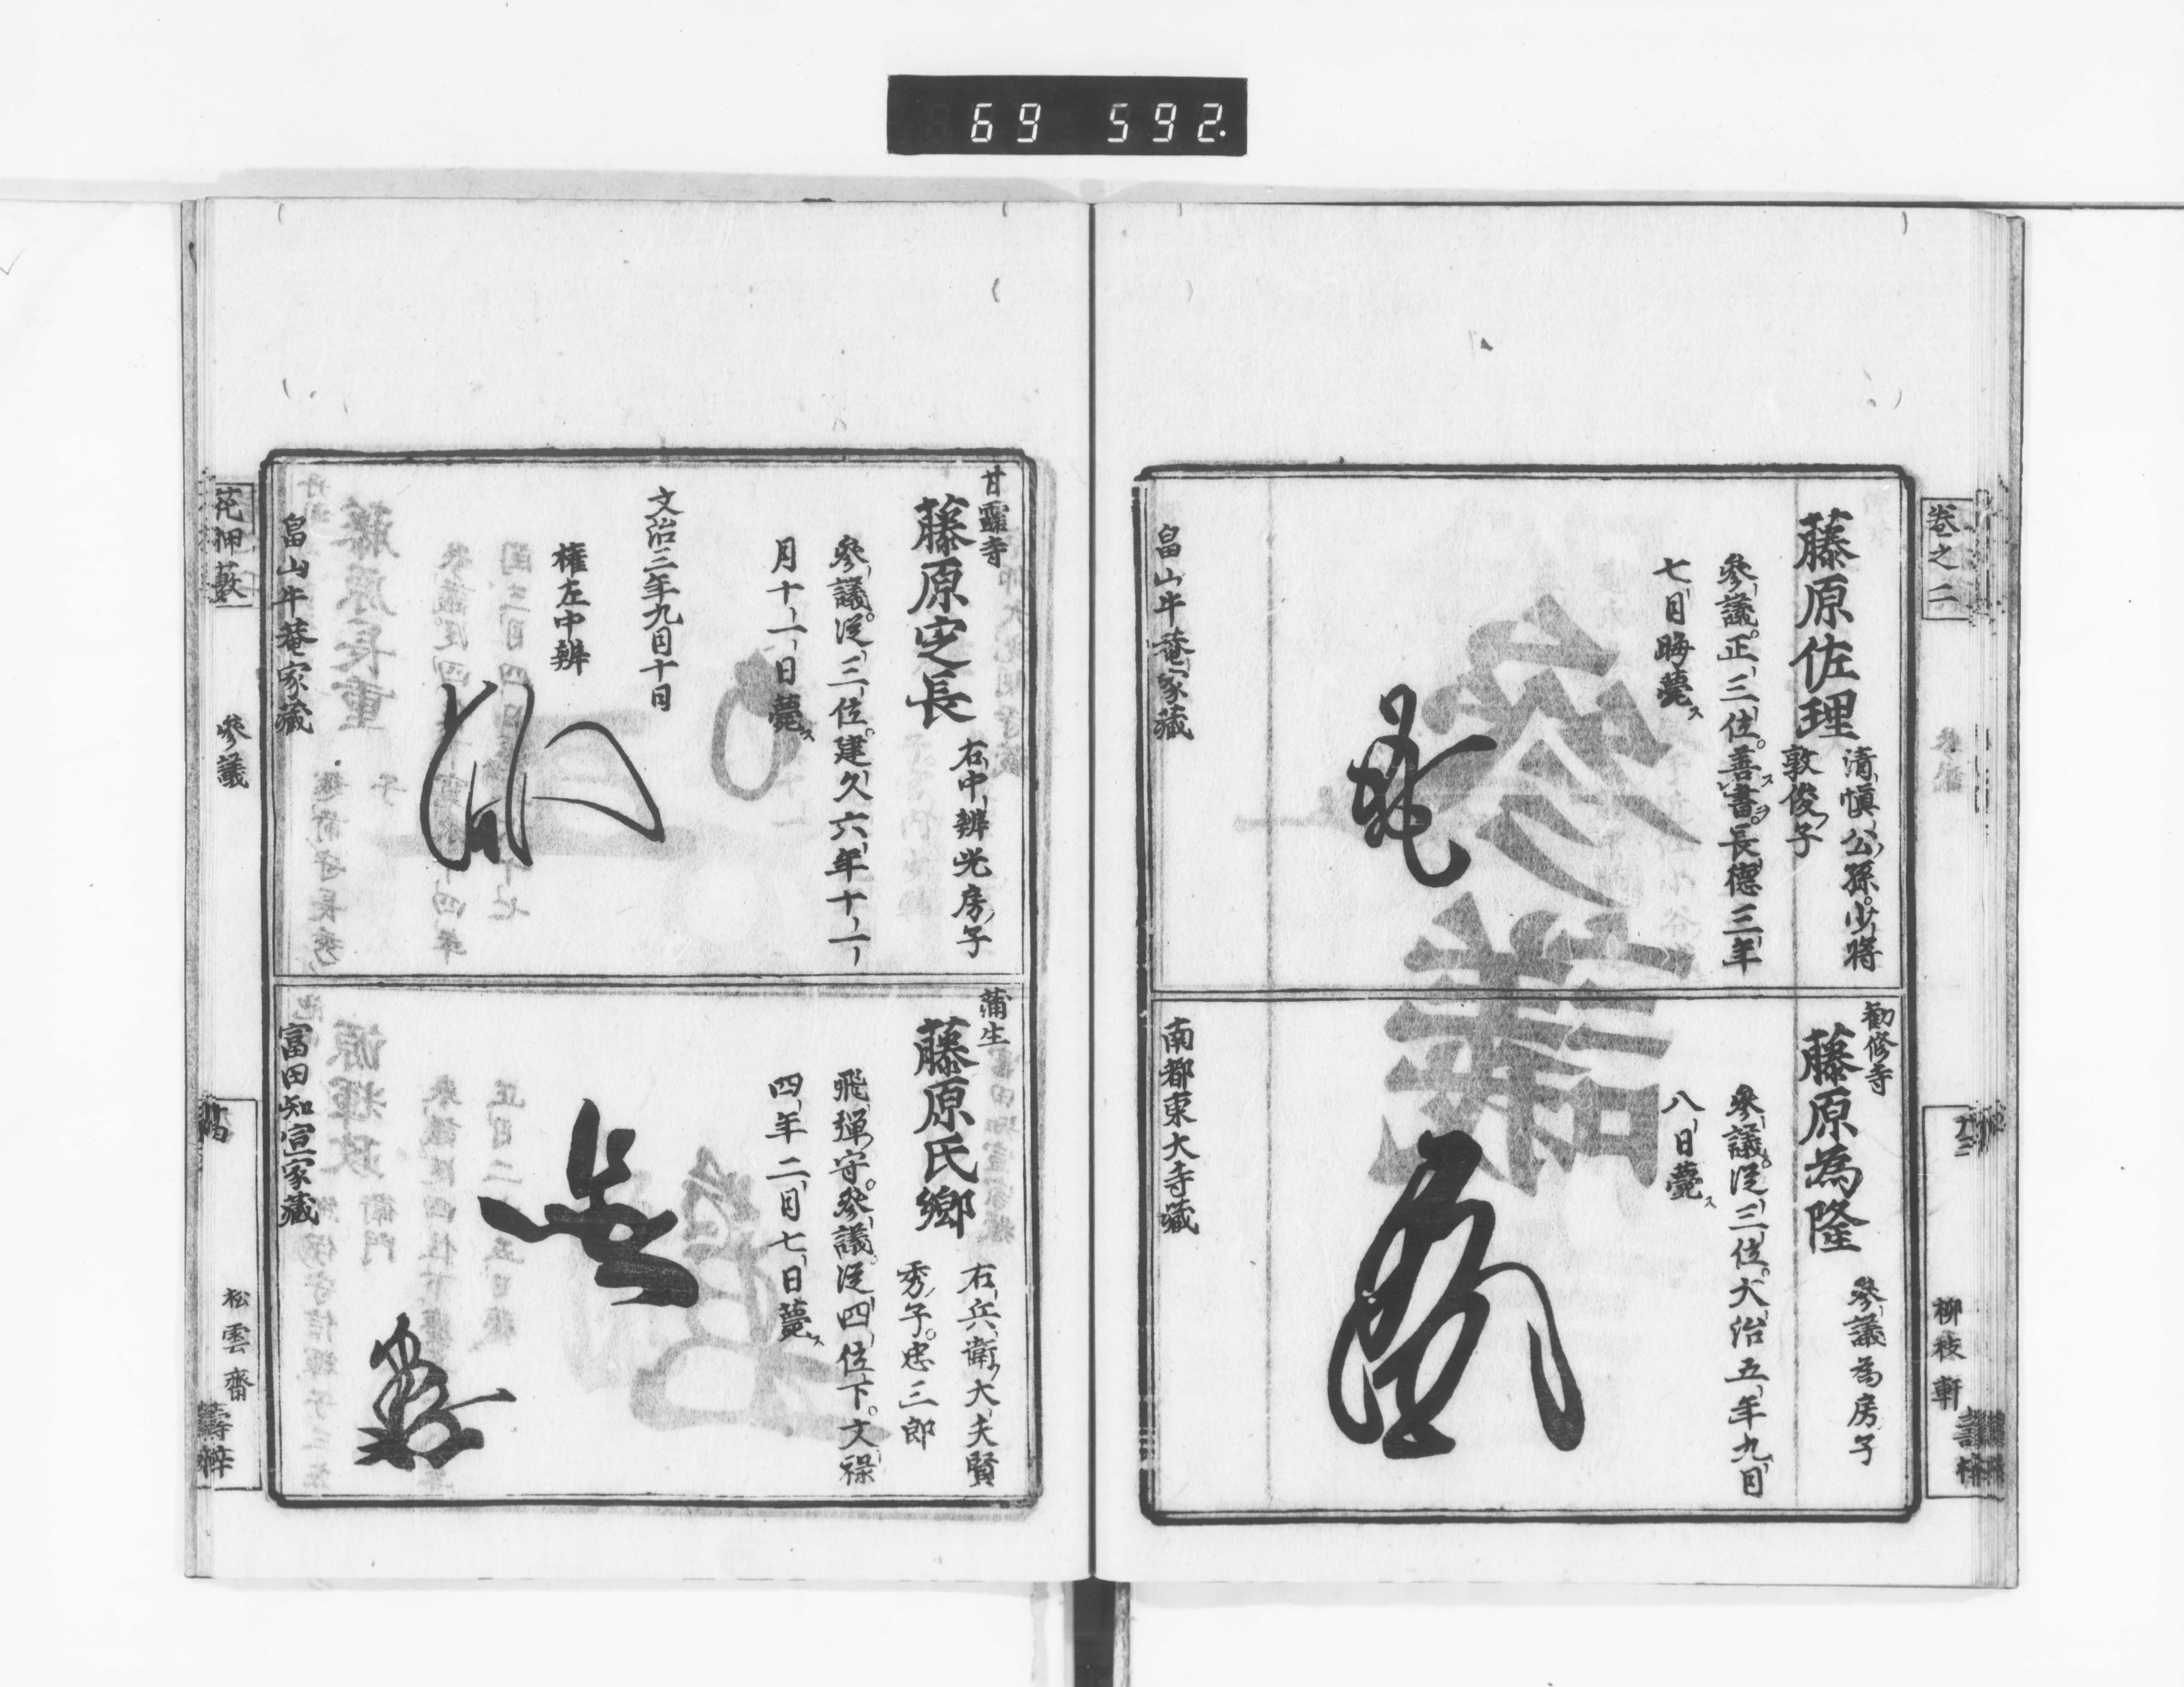 69 592.
卷之二
柳枝軒
藤原佐理
清愼公孫。少將
敦俊子
參議。正三位。善書。長德三年
七月晦薨ス
畠山牛菴家藏
勸修寺
藤原為隆
參議為房子
參議。從三位。大治五年九月
八日薨ス
南都東大寺藏
甘露寺
藤原定長
右中辨光房子
參議。從三位。建久六年十一
月十一日薨ス
文治三年九月十日
權左中辨
畠山牛菴家藏
蒲生
藤原氏鄉
右兵衞大夫賢
秀子。忠三郎
飛彈守。參議。從四位下。文祿
四年二月七日薨ス
富田知宣家藏
花押藪
參議
松雲齋